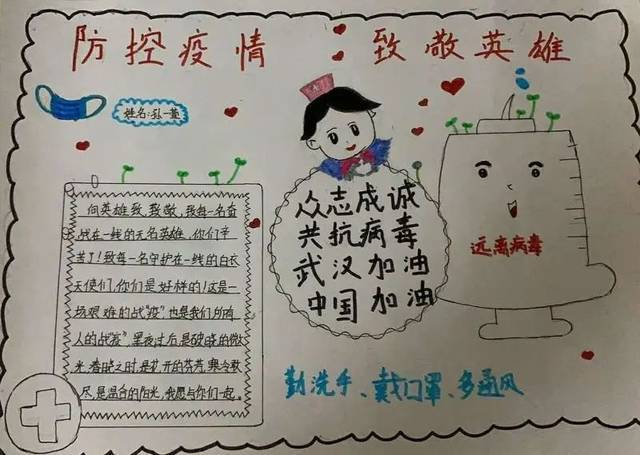 防控疫情 致敬英雄
姓名:孙一萱
向英雄致敬,致敬,致每一名奋
战在一线的无名英雄,你们辛
苦了!致每一名守护在一线的白衣
天使们,你们是好样的!这是一
场艰难的战“疫”也是我们所有
人的战疫”黑夜过后是破晓的微
光,春晓之时,是花开的芬芳,寒冬散
尽,是温合的阳光,我愿与你们一起。
众志成诚
共抗病毒
武汉加油
中国加油
远离病毒
勤洗手、戴口罩、多通风